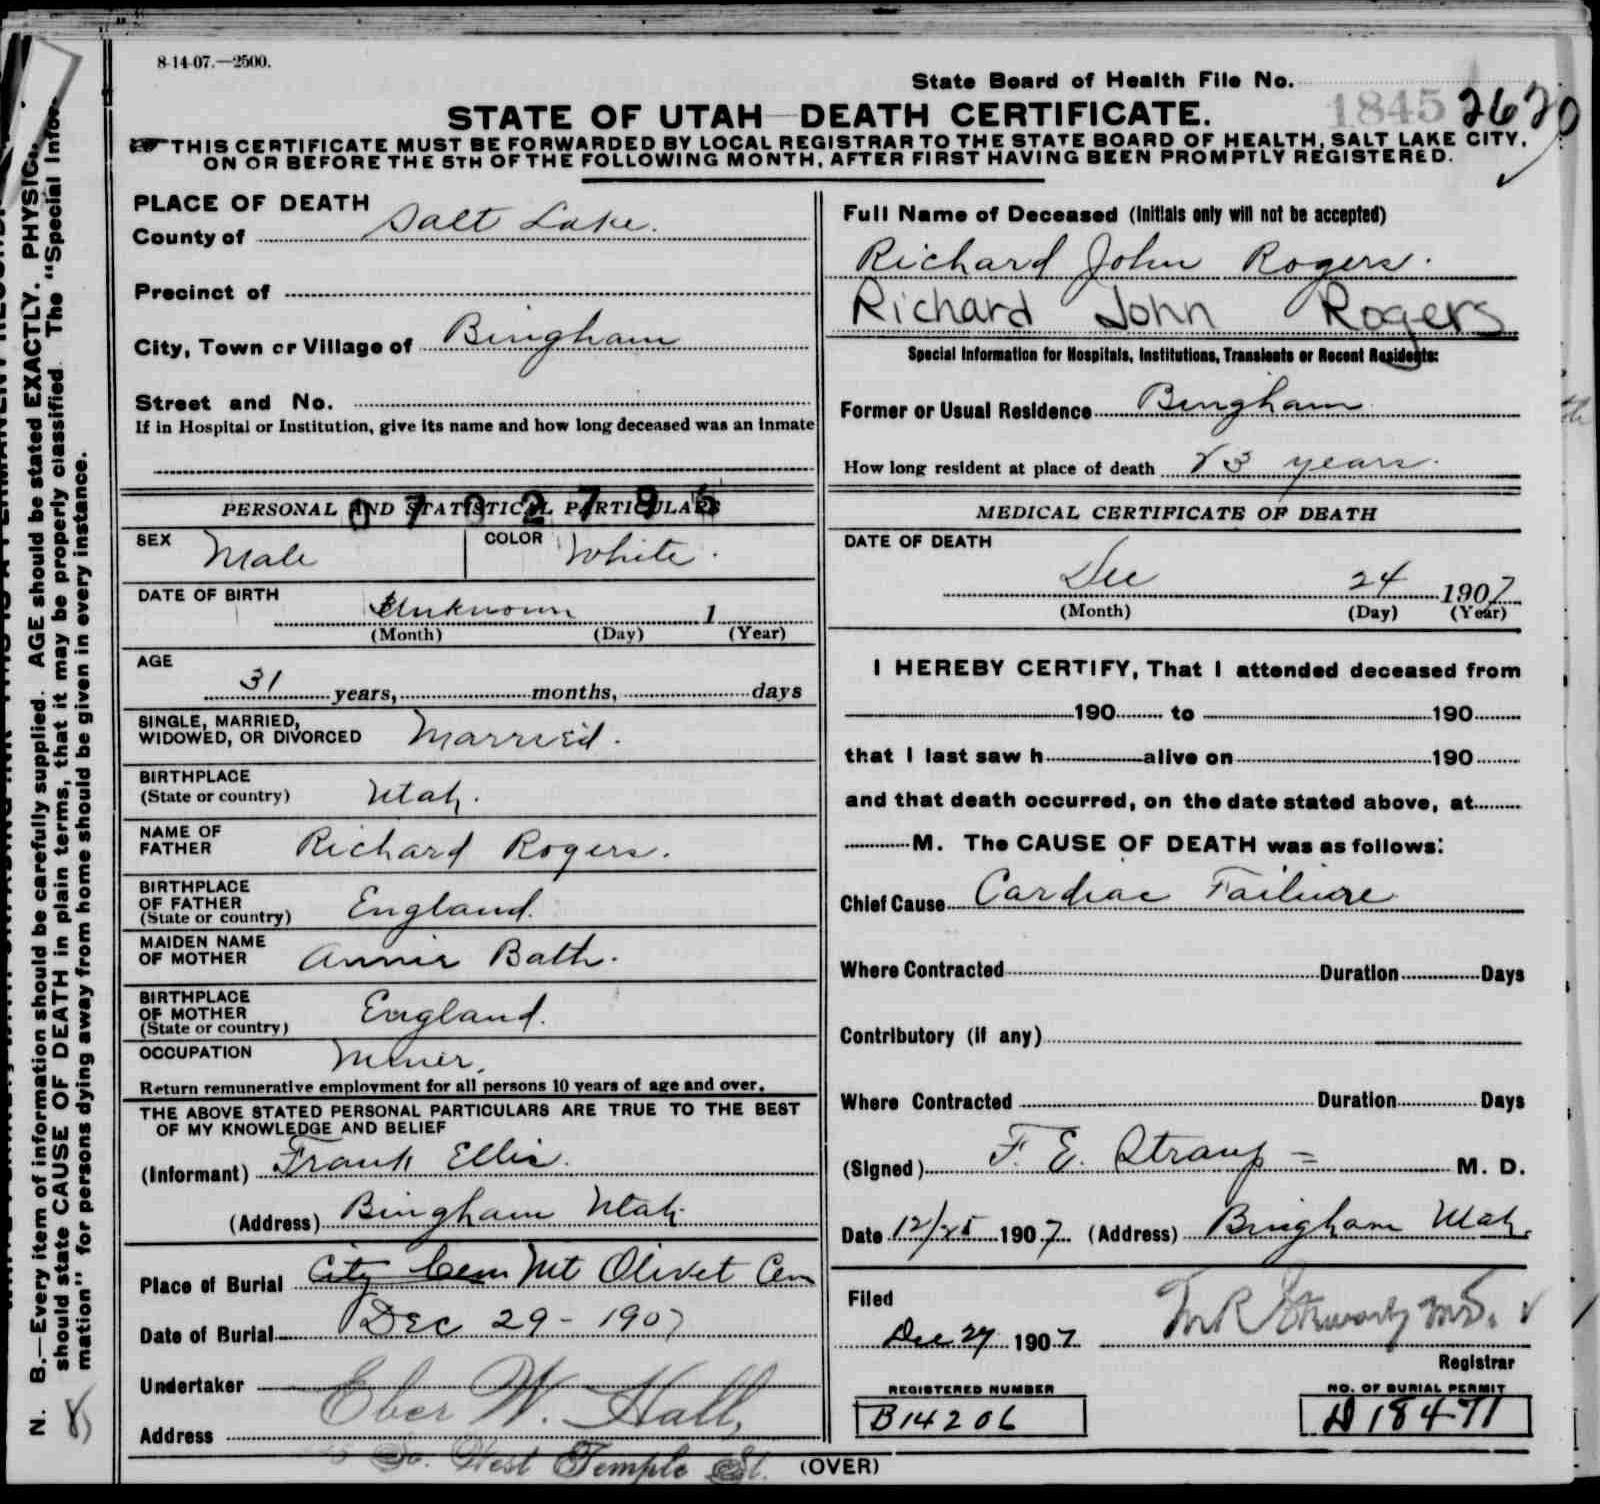 8-14-07.—2500.
State Board of Health File No.
1845 2620
STATE OF UTAH—DEATH CERTIFICATE.
THIS CERTIFICATE MUST BE FORWARDED BY LOCAL REGISTRAR TO THE STATE BOARD OF HEALTH, SALT LAKE CITY,
ON OR BEFORE THE 5TH OF THE FOLLOWING MONTH, AFTER FIRST HAVING BEEN PROMPTLY REGISTERED.
PLACE OF DEATH
County of Salt Lake.
Precinct of
City, Town or Village of Bingham
Street and No.
If in Hospital or Institution, give its name and how long deceased was an inmate
PERSONAL AND STATISTICAL PARTICULARS
SEX Male COLOR White.
DATE OF BIRTH
Unknown 1
(Month) (Day) (Year)
AGE
31 years, months, days
SINGLE, MARRIED,
WIDOWED, OR DIVORCED Married.
BIRTHPLACE
(State or country) Utah.
NAME OF
FATHER Richard Rogers.
BIRTHPLACE
OF FATHER
(State or country) England.
MAIDEN NAME
OF MOTHER Annie Bath.
BIRTHPLACE
OF MOTHER
(State or country) England.
OCCUPATION Miner.
Return remunerative employment for all persons 10 years of age and over.
THE ABOVE STATED PERSONAL PARTICULARS ARE TRUE TO THE BEST
OF MY KNOWLEDGE AND BELIEF
(Informant) Frank Ellis.
(Address) Bingham Utah
Place of Burial City Cem Mt Olivet Cem
Date of Burial Dec 29 - 1907
Undertaker Eber W. Hall,
Address So. West Temple St.
Full Name of Deceased (Initials only will not be accepted)
Richard John Rogers.
Richard John Rogers
Special Information for Hospitals, Institutions, Transients or Recent Residents:
Former or Usual Residence Bingham
How long resident at place of death 23 years.
MEDICAL CERTIFICATE OF DEATH
DATE OF DEATH
Dec 24 1907
(Month) (Day) (Year)
I HEREBY CERTIFY, That I attended deceased from
190 to 190
that I last saw h alive on 190
and that death occurred, on the date stated above, at
M. The CAUSE OF DEATH was as follows:
Chief Cause Cardiac Failure
Where Contracted Duration Days
Contributory (if any)
Where Contracted Duration Days
(Signed) F. E. Straup = M. D.
Date 12/25 1907 (Address) Bingham Utah.
Filed
Dec 27 1907
Registrar
REGISTERED NUMBER
B14206
NO. OF BURIAL PERMIT
D18471
(OVER)
N. B.—Every item of information should be carefully supplied. AGE should be stated EXACTLY. PHYSIC
should state CAUSE OF DEATH in plain terms, that it may be properly classified. The "Special Infor-
mation" for persons dying away from home should be given in every instance.